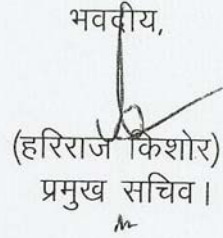 भवदीय,
(हरिराज किशोर)
प्रमुख सचिव।